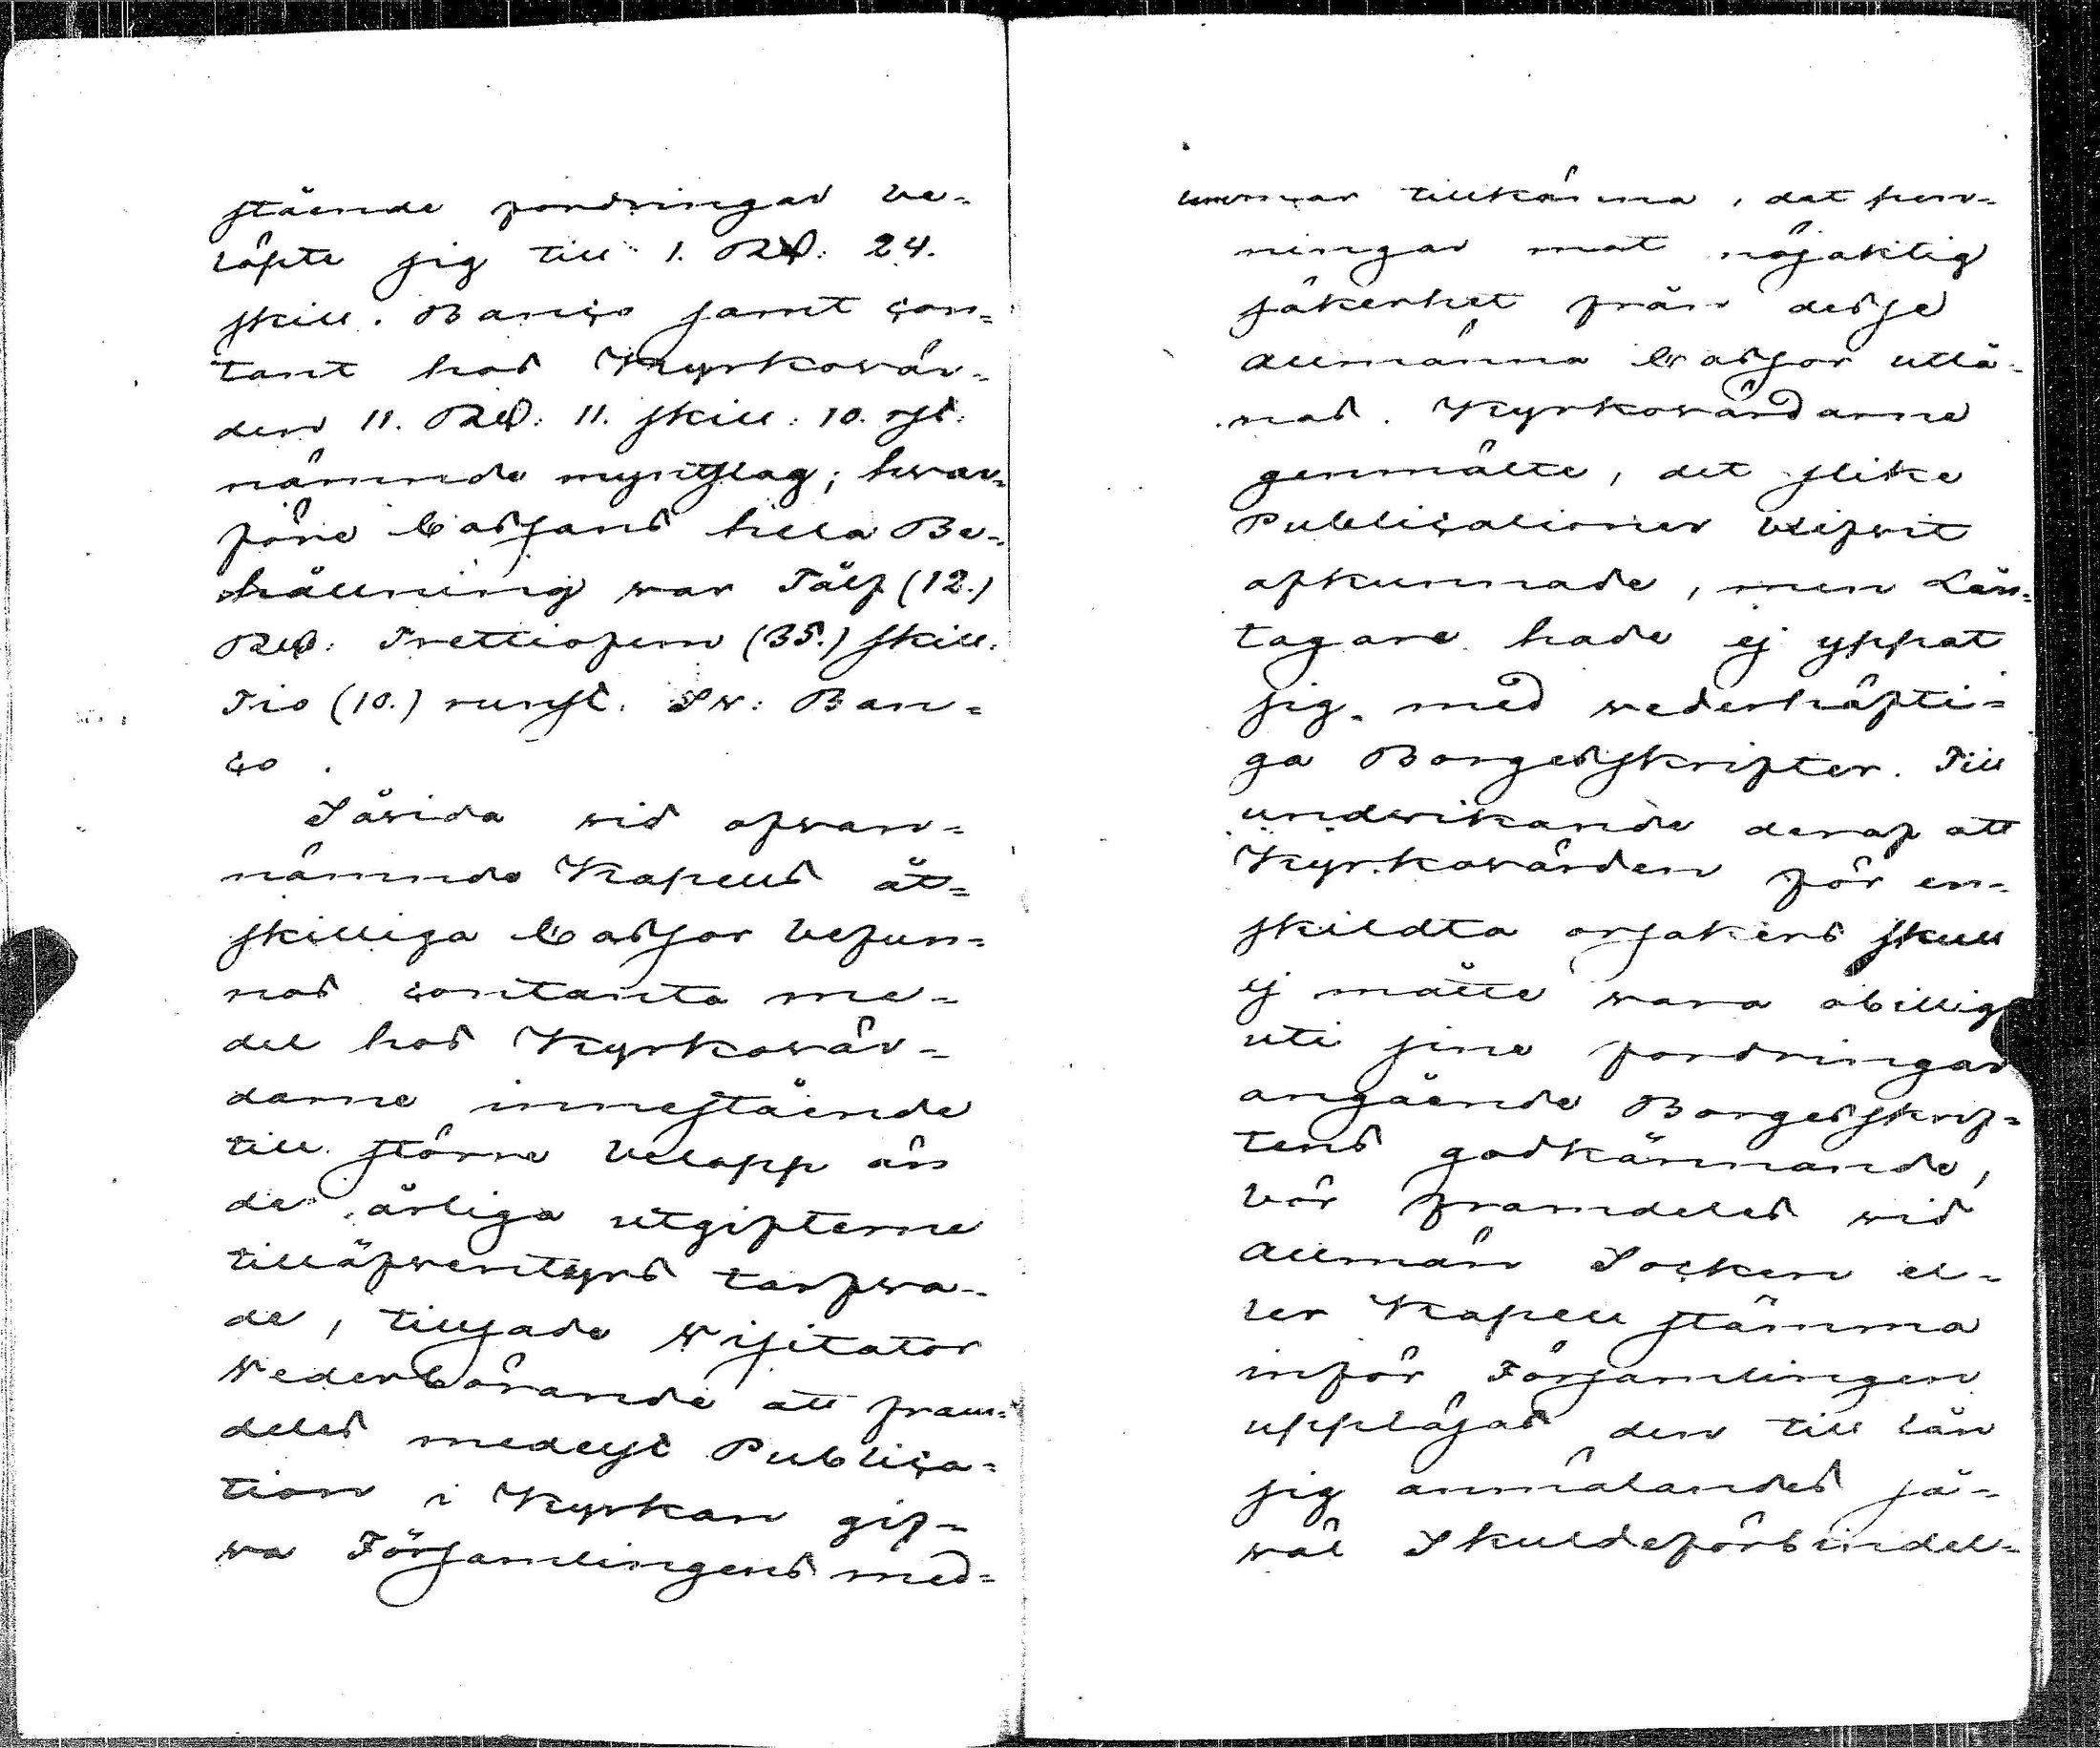 stående fordringar be=
löpte sig till 1. Rd: 24.
skill. Banco samt con=
tant hos Kyrkovär=
den 11. Rd: 11. skill: 10. rst:
nämnde myntslag; hvar=
före Cassans hela Be=
hållning war Tålf (12.)
Rd: Trettiofem (35.) skill:
Tio (10.) runst. Sw: Ban=
co.
Såvida wid ofvan=
nämnde Kapells åt=
skilliga Cassor befun=
nos contanta me=
del hos Kyrkovär=
darne innestående
till större belopp än
de årliga utgifterne
tilläfventyrs tarfva=
de, tillsade Wisitator
Wederbörande att fram=
deles medelst Publica=
tion i Kyrkan gif=
wa Församlingens med=
lemmar tillkänna, dat pen=
ningar mot nöjaktig
säkerhet från desse
allmänna Cassor utlå=
nas. Kyrkovärdarne
genmälte, det slike
Publicationer blifwit
afkunnade, men Lån=
tagare hade ej yppat
sig med wederhäfti=
ga Borgesskrifter. Till
undvikande deraf att
Kyrkovärden för en=
skildta orsakers skull
ej måtte wara obillig
uti sine fordringar
angående Borgesskrif=
tens godkännande,
bör framdeles wid
allmän Socken el=
ler Kapell stämma
inför Församlingen
uppläsas den till lån
sig anmälandes så=
wäl Skuldeförbindel=